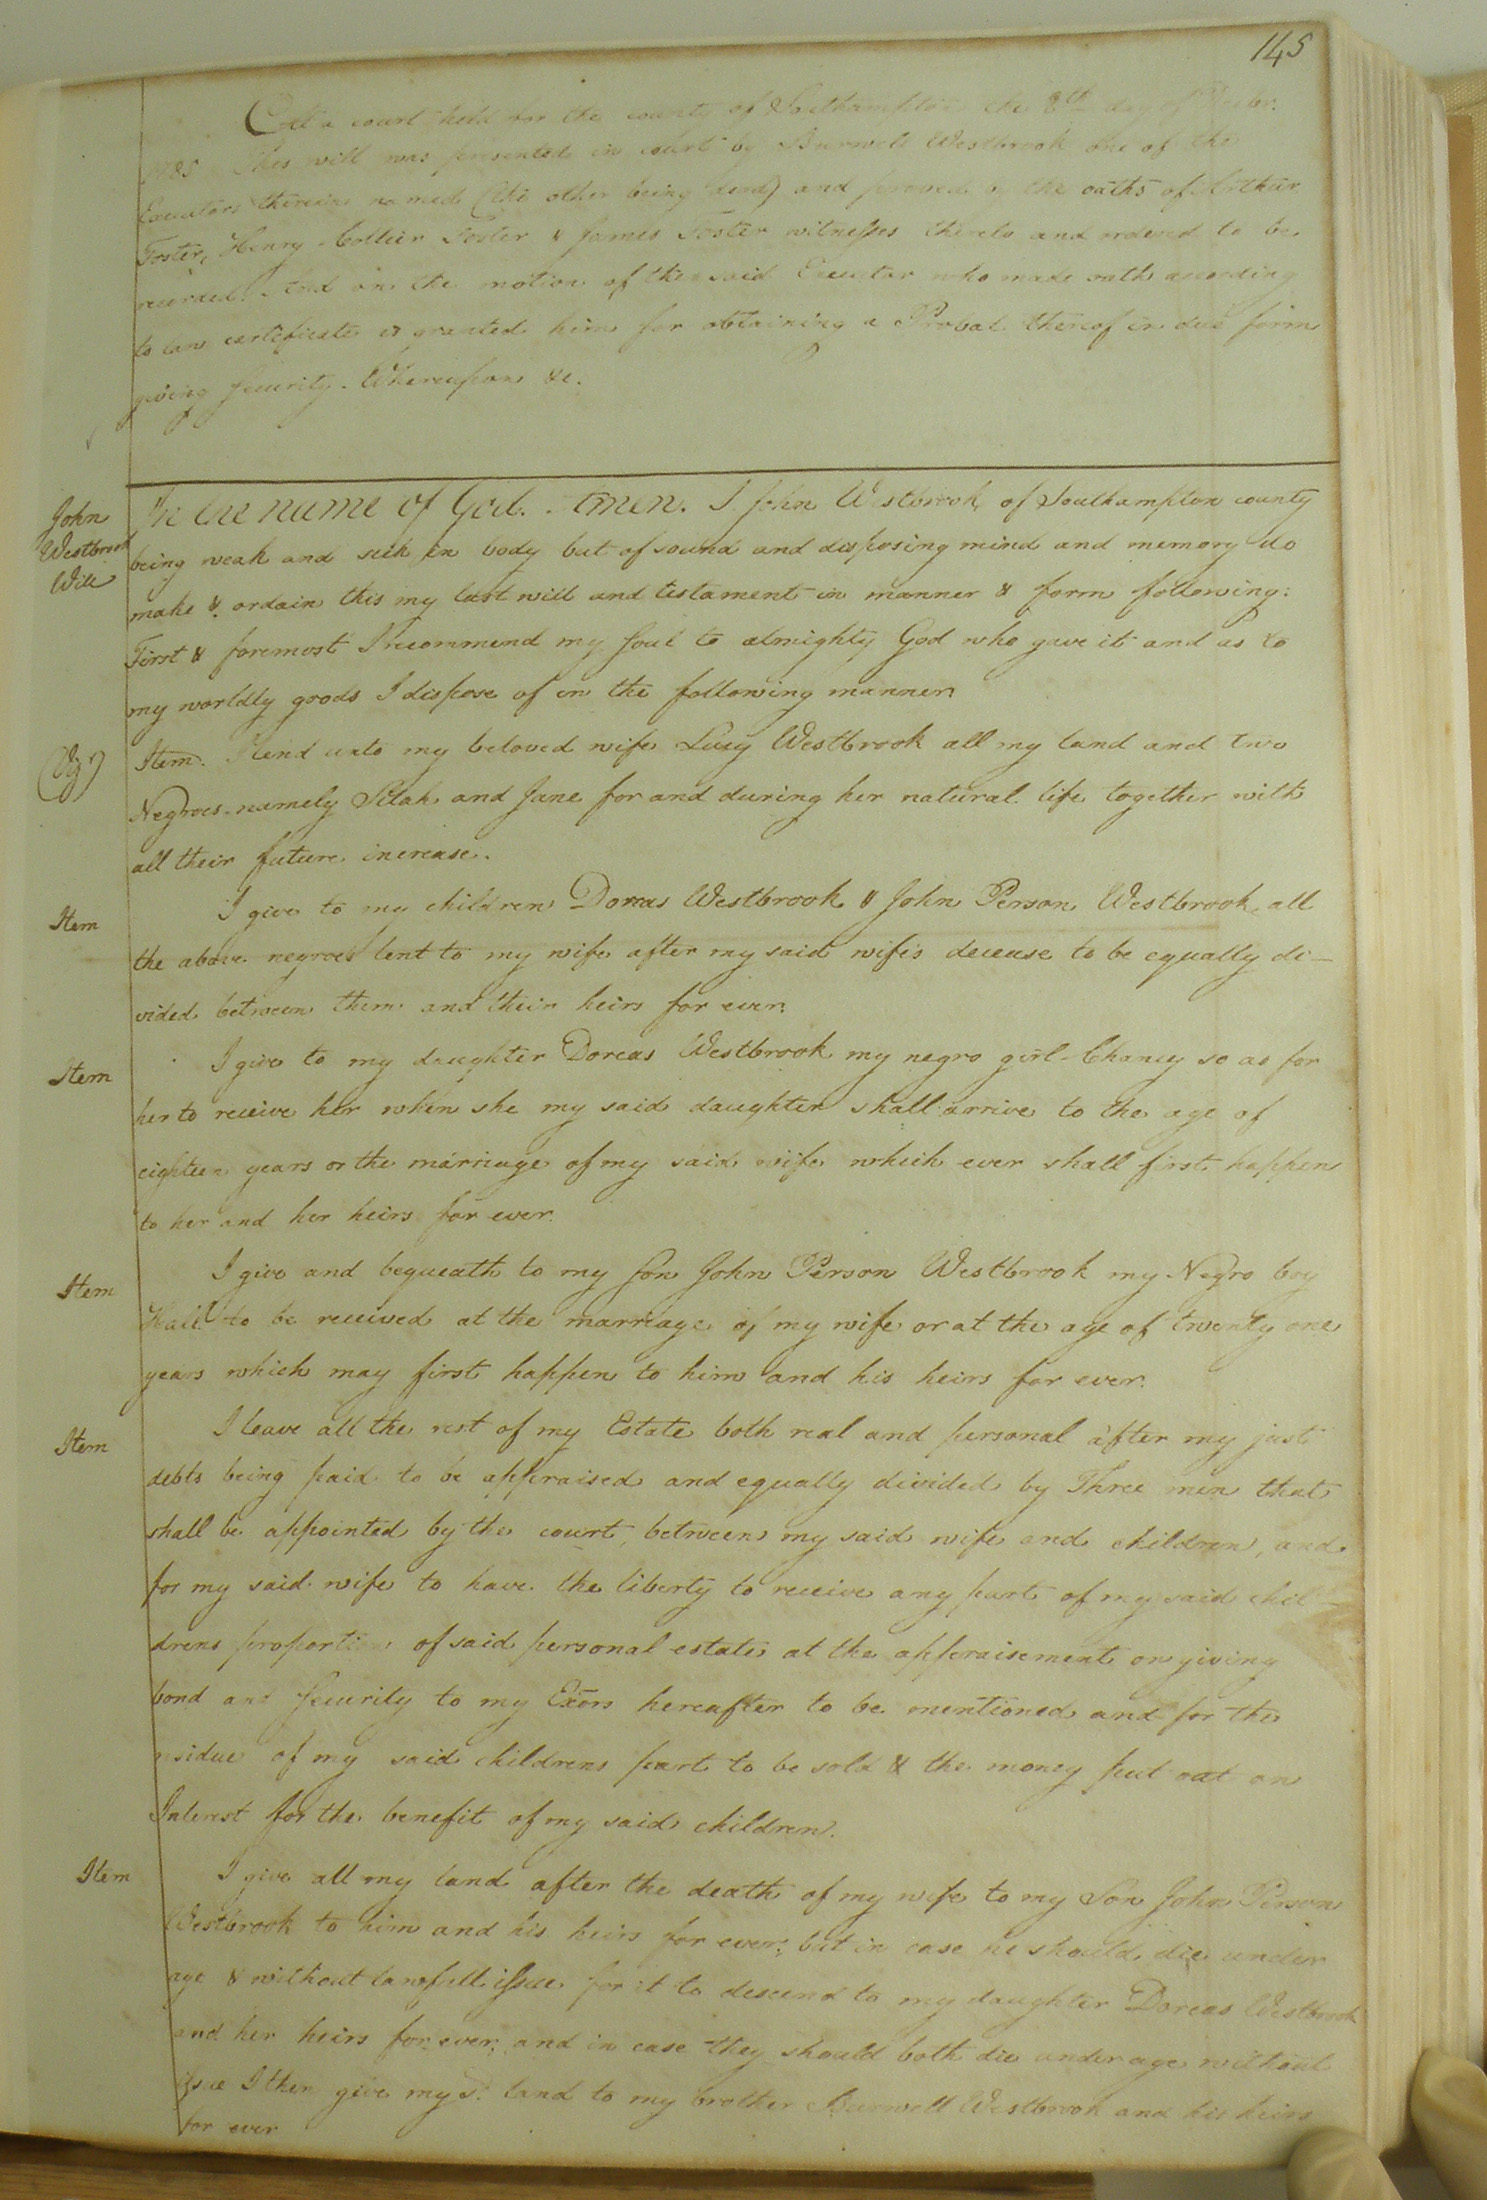 145
At a court held for the county of Southampton the 8th day of
1785 This will was presented in court by Burwell Westbrook one of the
Executors therein named (the other being dead) and proved by the oaths of Arthur
Foster, Henry Collier Foster & James Foster witnesses thereto and ordered to be
recorded. And on the motion of the said Executor who made oath according
to law certificate is granted him for obtaining a Probat thereof in due form
giving security. Whereupon &c.
John
Westbrook
Will
In the name of God. Amen. I John Westbrook of Southampton county
being weak and sick in body but of sound and disposing mind and memory do
make & ordain this my last will and testament in manner & form following:
First & foremost I recommend my soul to almighty God who gave it and as to
my worldly goods I dispose of in the following manner
Item. I lend unto my beloved wife Lucy Westbrook all my land and two
Negroes namely Silah and Jane for and during her natural life together with
all their future increase.
Item I give to my children Dorcas Westbrook & John Person Westbrook, all
the above negroes lent to my wife after my said wifes decease to be equally di-
vided between them and their heirs for ever.
Item I give to my daughter Dorcas Westbrook my negro girl Chaney so as for
her to receive her when she my said daughter shall arrive to the age of
eighteen years or the marriage of my said wife which ever shall first happen
to her and her heirs for ever.
Item I give and bequeath to my son John Person Westbrook my Negro boy
Hall to be received at the marriage of my wife or at the age of twenty one
years which may first happen to him and his heirs for ever.
Item I leave all the rest of my Estate both real and personal after my just
debts being paid to be appraised and equally divided by Three men that
shall be appointed by the court, between my said wife and children, and
for my said wife to have the liberty to receive any part of my said chil-
drens proportion of said personal estate at the appraisement on giving
bond and security to my Exors hereafter to be mentioned and for the
residue of my said childrens part to be sold & the money put out on
Interest for the benefit of my said children.
Item I give all my land after the death of my wife to my Son John Person
Westbrook to him and his heirs for ever, but in case he should die under
age & without lawfull issue for it to descend to my daughter Dorcas Westbrook
and her heirs for ever, and in case they should both die under age without
issue I then give my sd. land to my brother Burwell Westbrook and his heirs
for ever